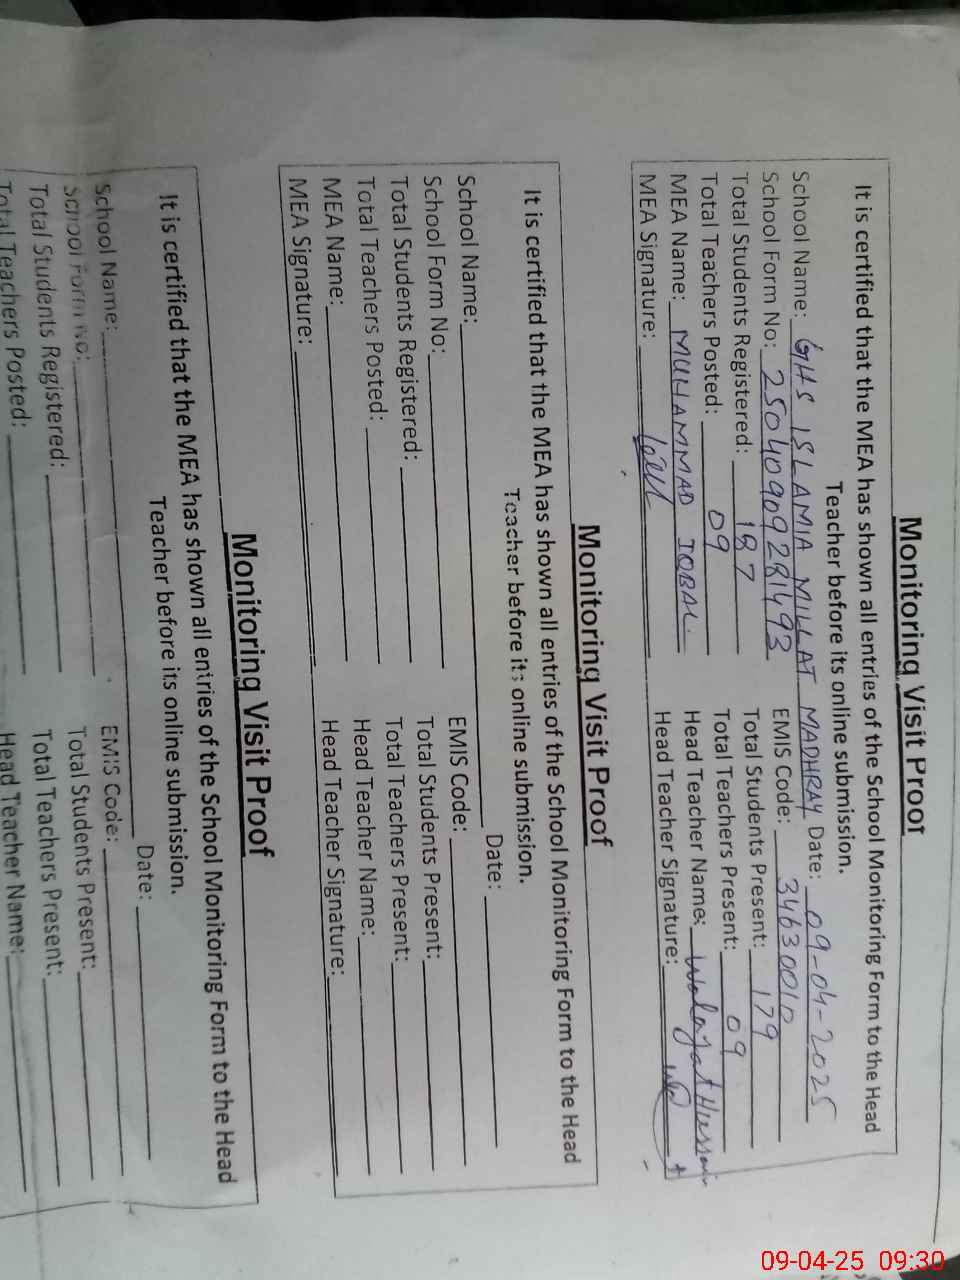 Monitoring Visit Proof
It is certified that the MEA has shown all entries of the School Monitoring Form to the Head
Teacher before its online submission.
School Name: GHS ISLAMIA MILLAT MADHRAY Date: 09-04-2025
School Form No: 25040909281493 EMIS Code: 34630010
Total Students Registered: 187 Total Students Present: 179
Total Teachers Posted: 09 Total Teachers Present: 09
MEA Name: MUHAMMAD IQBAL. Head Teacher Name: Walayat Hussain
MEA Signature: Head Teacher Signature:
Monitoring Visit Proof
It is certified that the MEA has shown all entries of the School Monitoring Form to the Head
Teacher before its online submission.
School Name: Date:
School Form No: EMIS Code:
Total Students Registered: Total Students Present:
Total Teachers Posted: Total Teachers Present:
MEA Name: Head Teacher Name:
MEA Signature: Head Teacher Signature:
Monitoring Visit Proof
It is certified that the MEA has shown all entries of the School Monitoring Form to the Head
Teacher before its online submission.
School Name: Date:
School Form No: EMIS Code:
Total Students Registered: Total Students Present:
Total Teachers Posted: Total Teachers Present:
Head Teacher Name:
09-04-25 09:30